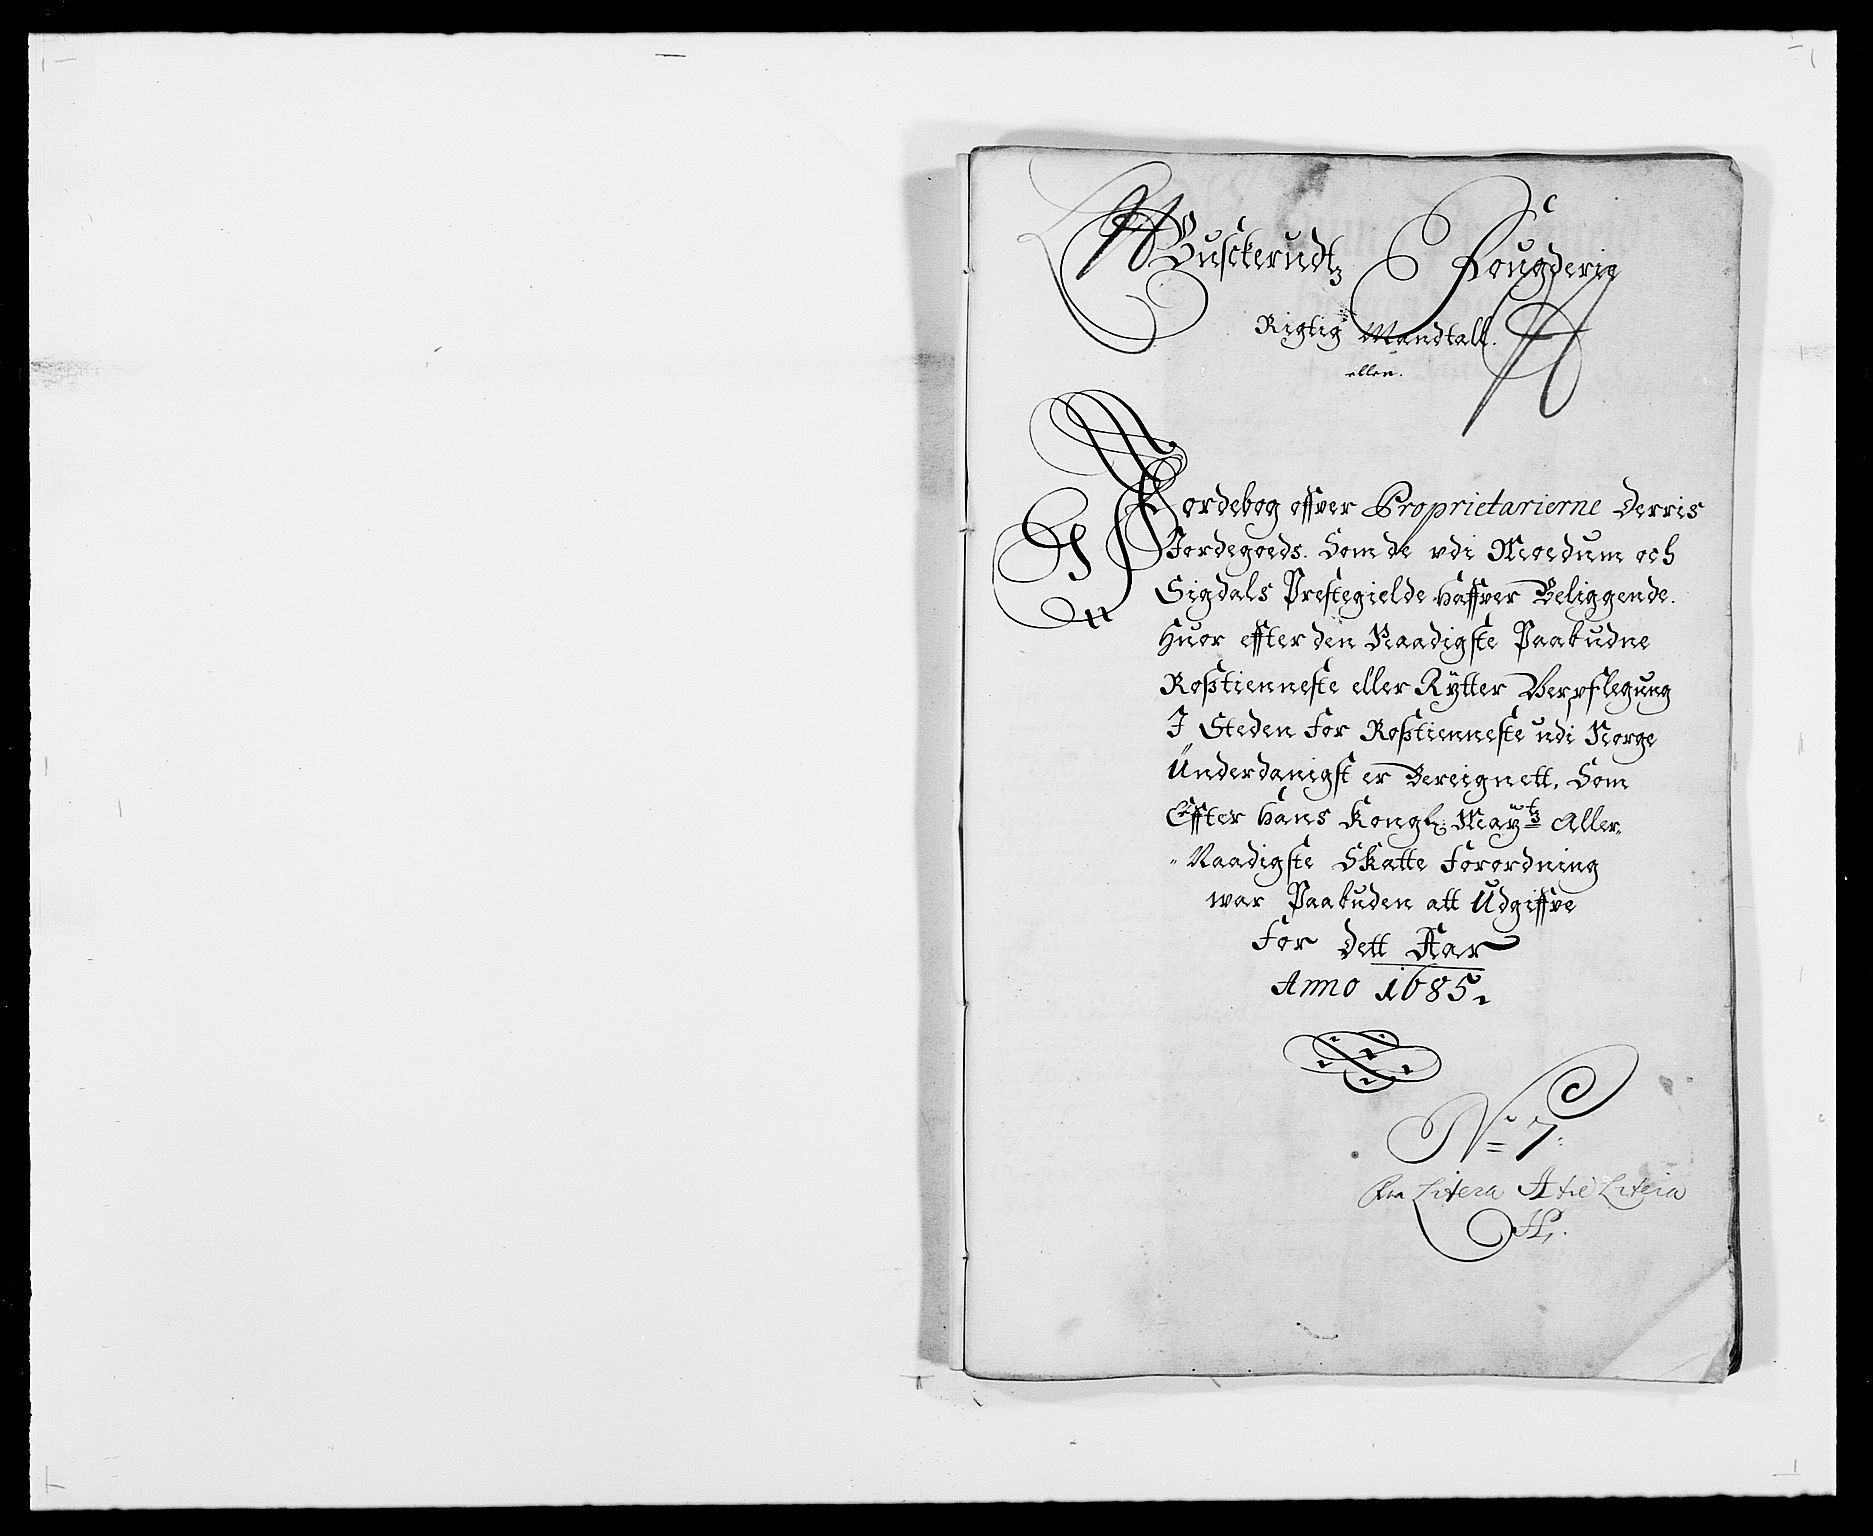 Busckerudtz Fougderie
Rigtig Mandtall.
eller.
Jordebog offver Proprietarierne derris
Jordegoeds. Som de udi Moedum och
Sigdals Prestegielde haffver Beliggende.
Huor effter den Naadigste Paabudne
Rostienneste eller Rÿtter Verpflegung
I Steden for Rostienneste udi Norge
Underdanigst er Bereignett, Som
Effter Hans Kongl: Maÿtz Aller„
„Naadigste Skatte Forordning
war Paabuden att Udgiffve
For dett Aar
Anno 1685.
No 7:
fra Litera A til Litera